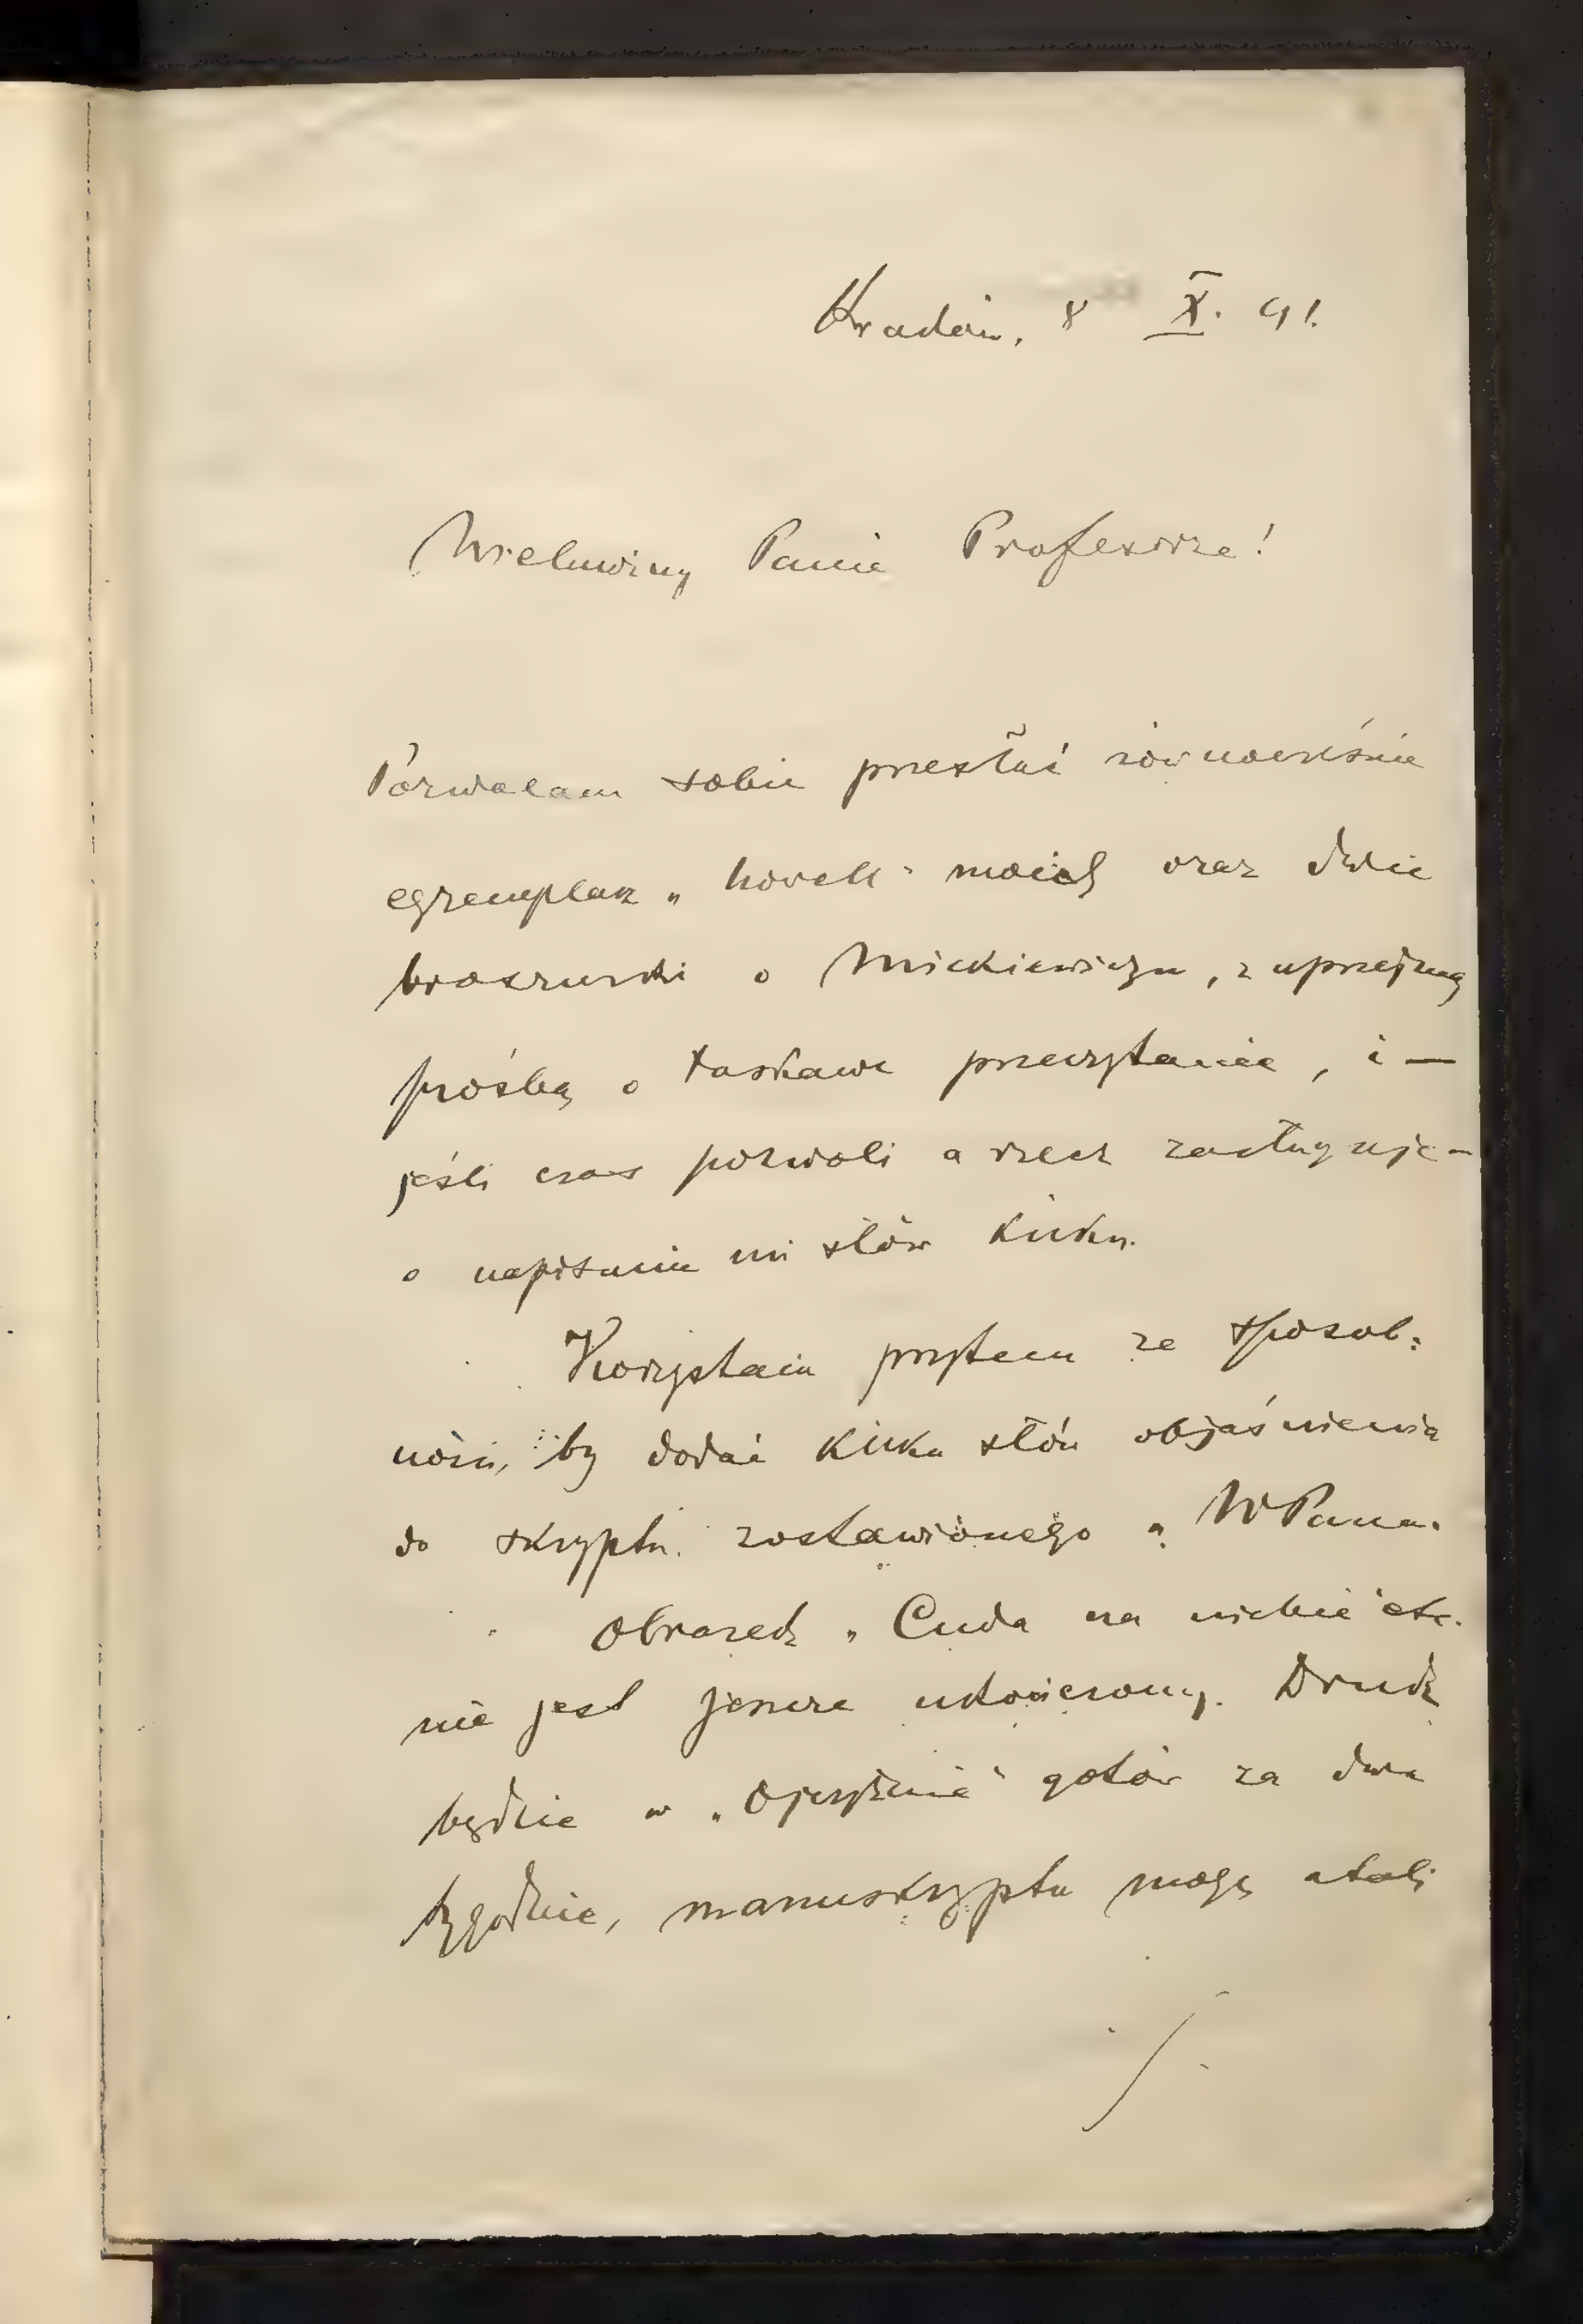 Kraków, 8 X. 91.
Wielmożny Panie Profesorze!
Pozwalam sobie przesłać równocześnie
egzemplarz „Novell" moich oraz dwie
broszurki o Mickiewiczu, z uprzejmą
prośbą o łaskawe przeczytanie, i —
jeśli czas pozwoli a rzecz zasługuje —
o napisanie mi słów kilku.
Korzystam przytem ze sposob:
ności, by dodać kilka słów objaśnienia
do skryptu zostawionego u WPana.
Obrazek „Cuda na niebie" etc.
nie jest jeszcze ukończony. Druk
będzie w „Ojczyźnie" gotów za dwa
tygodnie, manuskryptu mogę